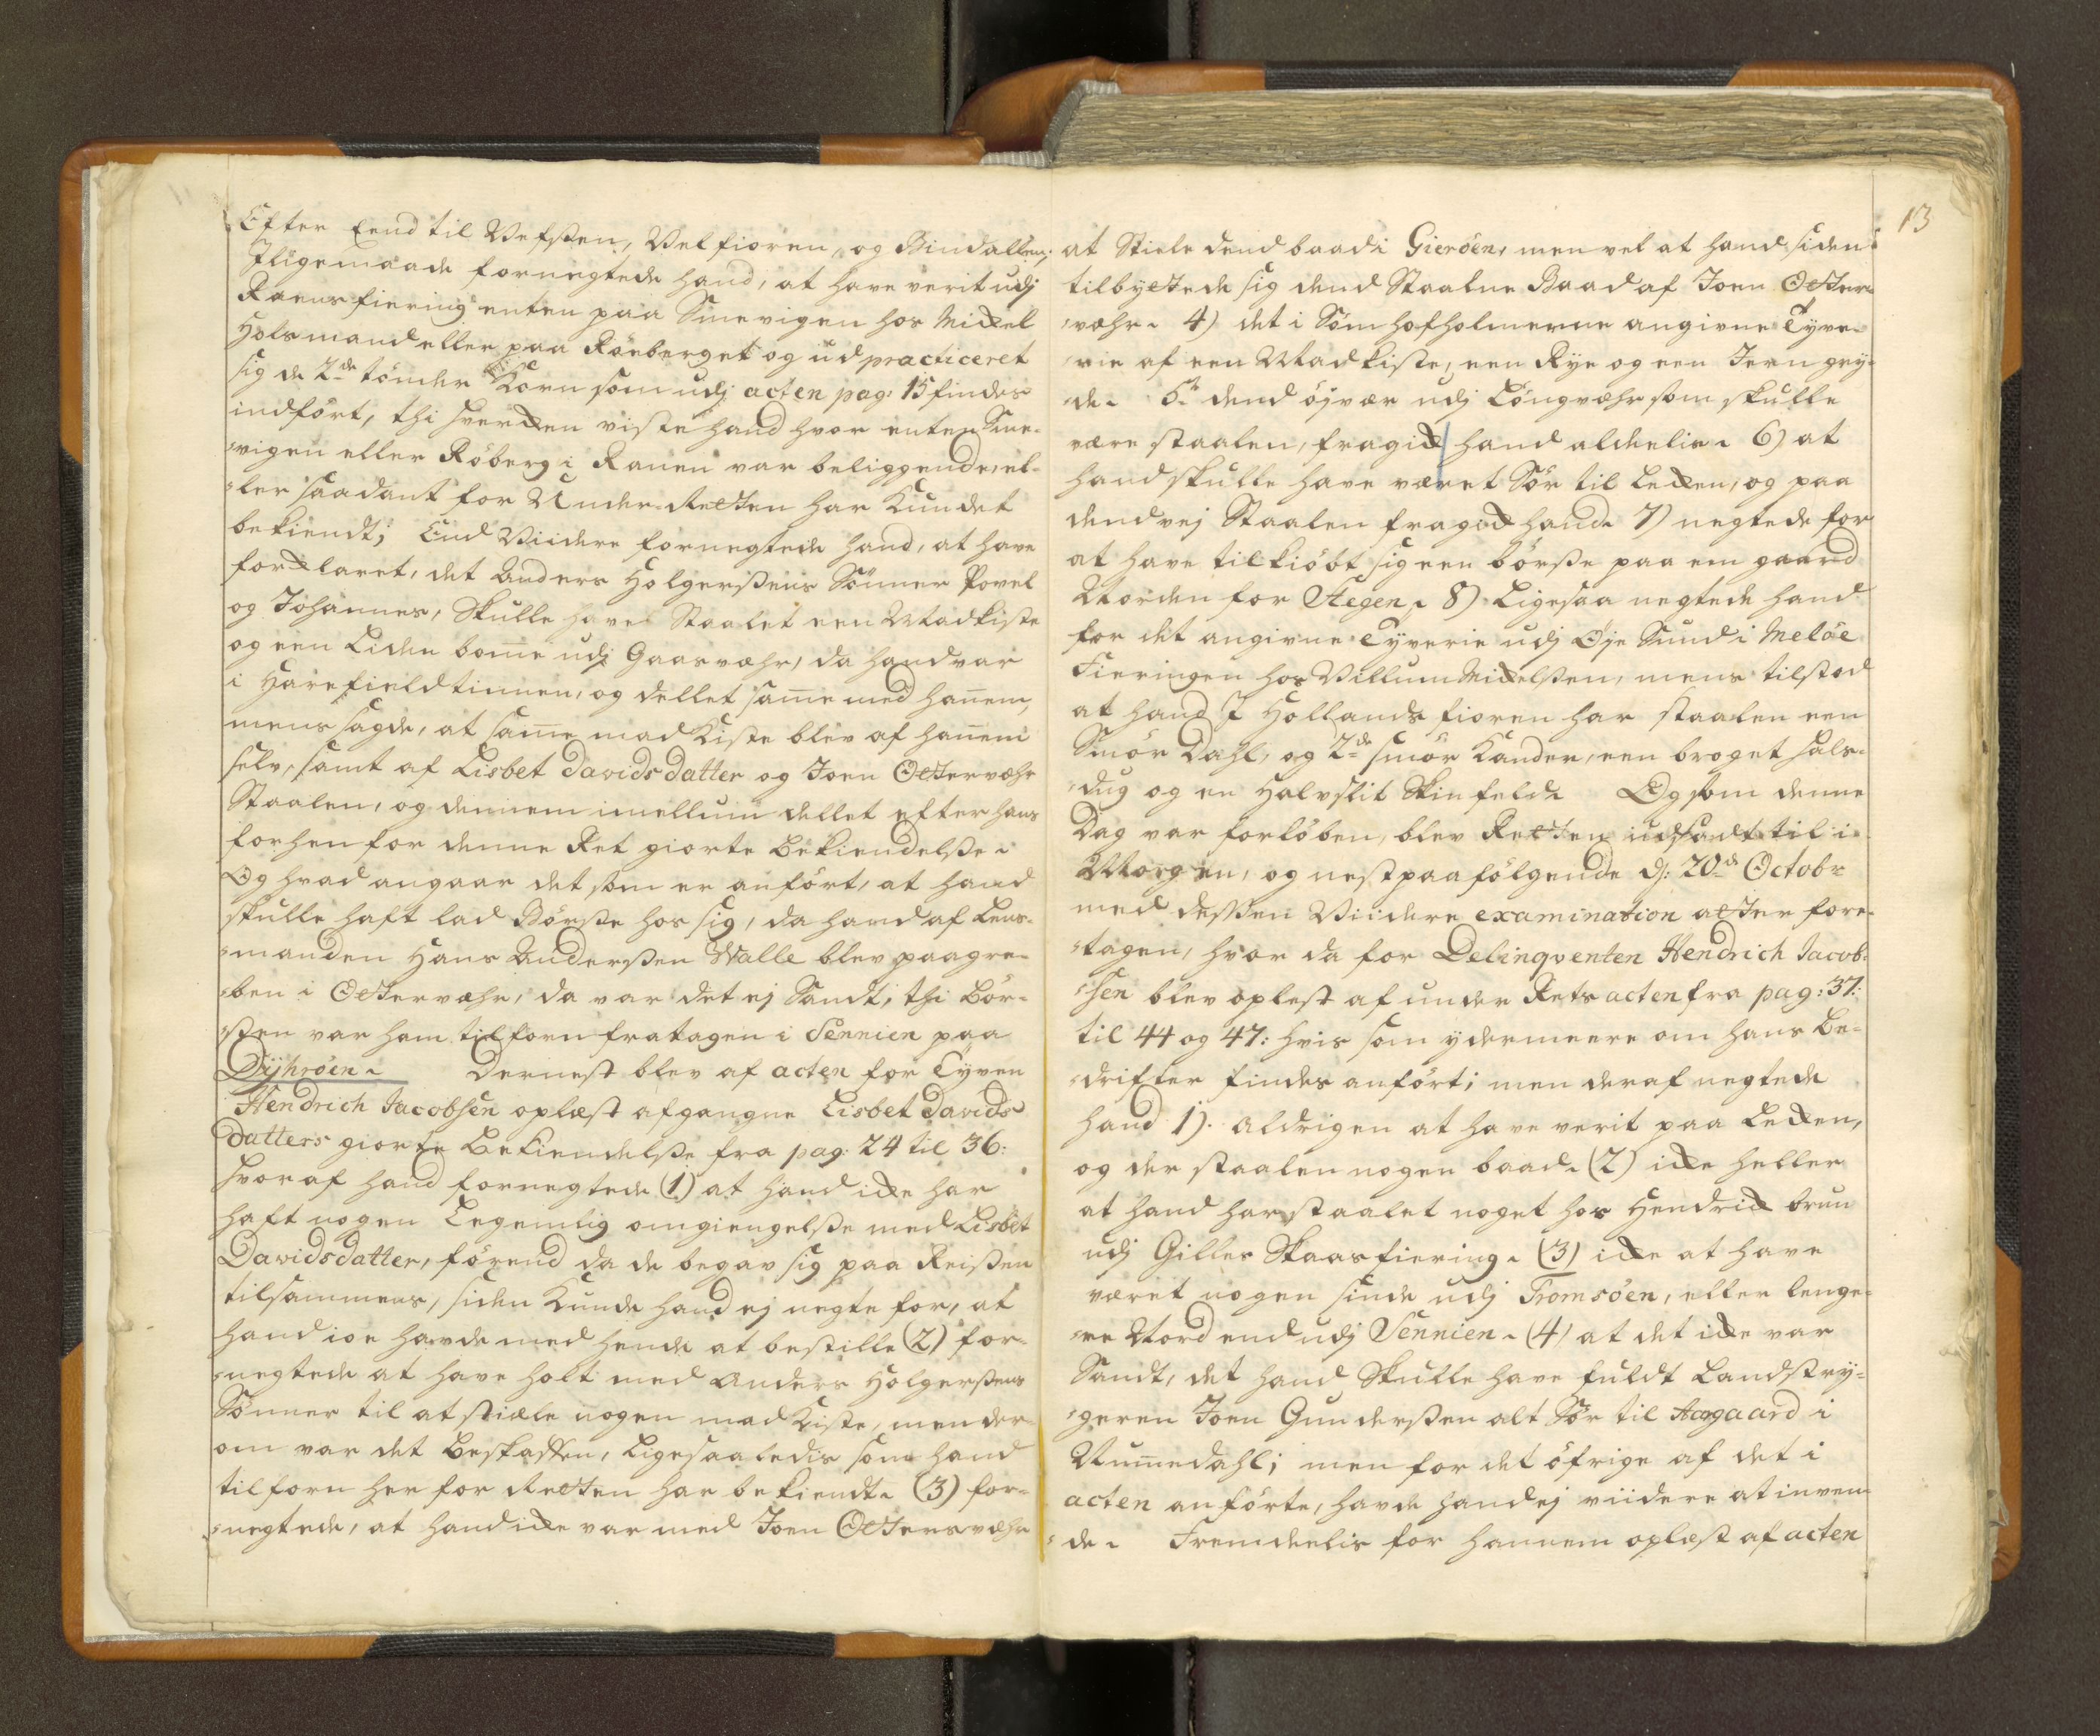 Efter End til Vefsten, Velfioren, og Bindallen,
Jligemaade fornegtede hand, at have verit udj
Raensfiering enten paa Snevigen hos Mickel
Holsmand eller paa Röeberget og udpracticeret
sig de 2de tönder Korn som udj acten pag: 15 findes
indfört, thi hverchen viste hand hvor enten Sne-
vigen eller Röberg i Ranen var beliggende, el-
ler saadant for Under-Retten har Kundet
bekiendt; End Viidere fornegtede hand, at have
forklaret, det Anders Holgerssens Sönner Povel
og Johannes, Skulle have Staalet een Madkiste
og een Liden bom̄e udj Gaasvæhr, da hand var
i Harefieldtinnen, og dellet sam̄e med han̄em,
mens sagde, at sam̄e mad Kiste blev af han̄em
selv, samt af Lisbet Davidsdatter og Joen Ottervæhr
Staalen, og dennem imellum dellet efter hans
forhen for denne Ret giorte Bekiendelsse.
Og hvad angaar det som er anfört, at hand
skulle haft lad Börsse hos sig, da hand af Lens-
manden Hans Anderssen Walle blev paagre-
ben i Ottervæhr, da var det ej Sandt; thi Bör-
ssen var ham tilforn fratagen i Sennien paa
Dyhröen. Dernest blev af acten for Tyven
Hendrich Jacobsen oplæst afgangne Lisbet Davids
datters giorte Bekiendelsse fra pag: 24 til 36:
hvoraf hand fornegtede (1) at hand icke har
haft nogen Legemlig omgiengelsse med Lisbet
Davidsdatter, förend da de begav sig paa Reissen
tilsammens, siden Kunde hand ej negte for, at
hand joe havde med hende at bestille (2) for-
negtede at have holt med Anders Holgerssens
Sönner til at stiæle nogen mad Kiste, men der-
om var det Beskaffen, Ligesaaledis som hand
tilforn her for Retten har bekiendt. (3) for-
negtede, at hand icke var med Joen Ottersvæhr
13
at Stiele dend baad i Gieröen, men vel at hand siden
tilbyttede sig dend Staalne Baad af Joen Otter-
væhr. 4) det i Sömhofholmerne angivne Tyve-
rie af een Madkiste, een Rye og een Jern gry-
de. 5. dend öjvær udj Löngvæhr som skulle
være staalen, fragick hand aldeelis. 6) at
hand skulle have været Sör til Lecken, og paa
dend vej Staalen fragick hand. 7) negtede for
at have tilkiöbt sig een börsse paa em gaard
Norden for Stegen. 8) Ligesaa negtede hand
for det angivne Tyverie udj Øye Sund i Melöe
Fieringen hos Villum Mickelssen, mens tilstod
at hand J Hollandsfioren har staalen een
Smör Dahl, og 2de smör Kander, een broget Hals-
dug og en Halvslit Skinfeld. Og som denne
Dag var forlöben, blev Retten udsadt til i
Morgen, og nestpaafölgende d: 20de Octobr
med dessen Viidere examination atter fore-
tagen, hvor da for Delinqventen Hendrich Jacob-
sen blev oplest af under Rets acten fra pag: 37:
til 44 og 47: hvis som ydermeere om hans Be-
drifter findes anfört; men deraf negtede
hand 1). Aldrigen at have verit paa Lecken,
og der staalen nogen baad. (2) icke heller
at hand har staalet noget hos Hendrick brun
udj Gilles Skaasfiering. (3) icke at have
været nogen sinde udj Tromsöen, eller lenge-
re Nord end udj Sennien. (4) at det icke var
Sandt, det hand Skulle have fuldt Landstry-
geren Joen Gunderssen alt Sör til Aargaard i
Num̄edahl; men for det öfrige af det i
acten anförte, havde hand ej viidere at inven-
de. Fremdeelis for hannem oplæst af acten